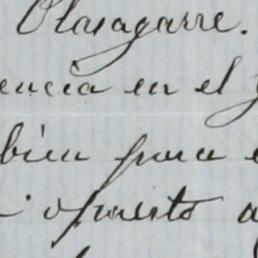 Olasagarre.
encia en el
bien para
opuesto a